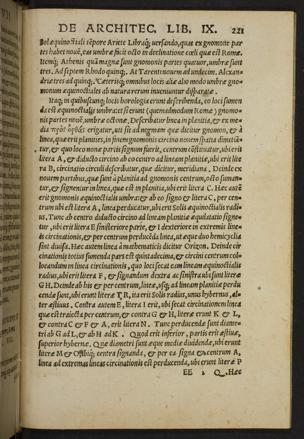 DE ARCHITEC. LIB. IX. 221
Sol æquinoctiali tẽpore Ariete Libraq́; uersando, quas ex gnomone par
tes habet nouẽ, eas umbræ facit octo in declinatione cœli quæ est Romæ.
Itemq́; Athenis quã magna sunt gnomonis partes quatuor, umbræ sunt
tres. Ad septem Rhodo quinq́. At Tarenti nouem ad undecim. Alexan-
driæ tres ad quinq́. Cæterisq́; omnibus locis aliæ alio modo umbræ gno-
monum æquinoctiales ab natura rerum inueniuntur disparatæ.
Itaq́; in quibuscunq́; locis horologia erunt describenda, eo loci sumen
da est æquinoctialis umbra: et si erunt (quemadmodum Romæ) gnomo-
nis partes nouẽ, umbræ octonæ, Describatur linea in planitie, & ex me-
dia erigatur, uti sit ad normam quæ dicitur gnomon, & à
linea, quæ erit planities, in finem gnomonis circino nouem spatia dimetian
tur, & quo loco nonæ partis signum fuerit, centrum cõstituatur, ubi erit
litera A, & diducto circino ab eo centro ad lineam planitiæ, ubi erit lite
ra B, circinatio circuli describatur, quæ dicitur, meridiana, Deinde ex
nouem partibus, quæ sunt à planitia ad gnomonis centrum, octo suman-
tur, & signentur in linea, quæ est in planitia, ubi erit litera C. Hæc autẽ
erit gnomonis æquinoctialis umbra: & ab eo signo & litera C, per cen-
trum ubi est litera A, linea perducatur, ubi erit Solis æquinoctialis radi-
us. Tunc ab centro diducto circino ad lineam planitiæ æquilatatio signe-
tur, ubi erit litera E sinisteriore parte, & I dexteriore in extremis line-
is circinationis, & per centrum perducenda linea, ut æque duo hemicyclia
sint diuisa. Hæc autem linea à mathematicis dicitur Orizon. Deinde cir
cinationis totius sumenda pars est quintadecima, & circini centrum col-
locandum in linea circinationis, quo loci secat eam lineam æquinoctialis
radius, ubi erit litera F, & signandum dextra ac sinistra ubi sunt literæ
G H. Deinde ab his & per centrum, lineæ, usq́; ad lineam planitiæ perdu
cendæ sunt, ubi erunt literæ T, R, ita erit Solis radius, unus hybernus, al-
ter æstiuus. Contra autem E, litera I erit, ubi secat circinationem linea
quæ est traiecta per centrum, & contra G & H, literæ erunt K & L,
& contra C & F & A, erit litera N. Tunc perducendæ sunt diame-
tri ab G ad L, & ab H ad K. Quod erit inferior, partis erit æstiuæ,
superior hybernæ. Quæ diametri sunt æque mediæ diuidendæ, ubi erunt
literæ M & O, ibiq́; centra signanda, & per ea signa & centrum A,
linea ad extremas lineas circinationis est perducenda, ubi erunt literæ P
EE 2 Q. Hæc